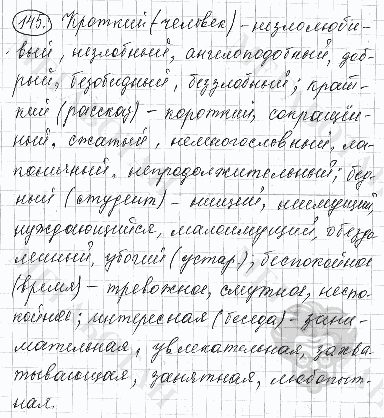 145. Кроткий (человек) – незлолюби-
вый, незлобный, ангелоподобный, доб-
рый, безобидный, беззлобный; крат-
кий (рассказ) – короткий, сокращён-
ный, сжатый, немногословный, ла-
коничный, непродолжительный; бед-
ный (студент) – нищий, неимущий,
нуждающийся, малоимущий, обездо-
ленный, убогий (устар); беспокойное
(время) – тревожное, смутное, неспо-
койное; интересная (беседа) – зани-
мательная, увлекательная, захва-
тывающая, занятная, любопыт-
ная.